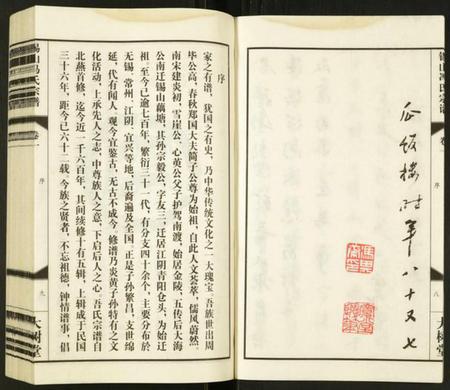 錫山馮氏宗譜
卷一
序
八
大樹堂
時年八十又七
錫山馮氏宗譜
卷一
序
九
大樹堂
序
家之有譜，猶国之有史，乃中华传統文化之一大瑰宝。吾族世出周
毕公高，春秋郑国大夫简子公尊为始祖，自此人文荟萃，儒风蔚然。
南宋建炎初，雪崖公、心英公父子护驾南渡，始居金陵，五传后大海
公南迁錫山藕塘，其孙宗毅公，字友三，迁居江阴青阳仓头，为始迁
祖。至今已逾七百年，繁衍三十一代，有分支四十余个，主要分布於
无锡、常州、江阴、宜兴等地，后裔遍及全国。正是子孙繁昌，支世绵
延，代有闻人。观今宜鉴古，无古不成今。修谱乃炎黄子孙特有之文
化活动，上承先人之志，中尊族人之意，下启后人之心。吾氏宗谱自
北燕首修，迄今近一千六百年，其间续修十有五辑，上辑成于民国
三十六年，距今已六十二载。今族之賢者，不忘祖德，钟情谱事，倡